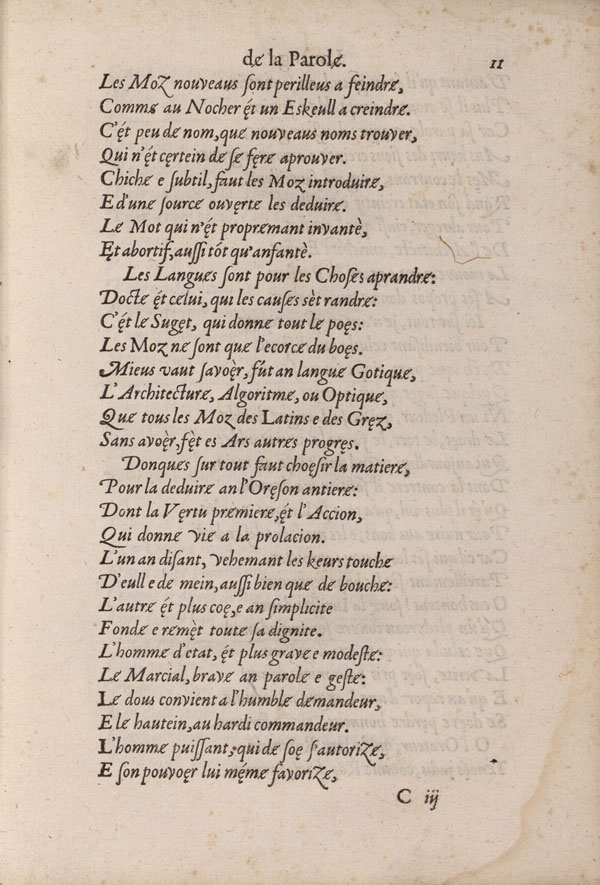 de la Parolę. 11
Les Moz nouveaus ſont perilleus a feindrę,
Commę au Nocher ę́t un Eskeull a creindre.
C'ę́t peu dę nom, quę nouveaus noms trouver,
Qui n'ę́t cęrtein dę ſę fęrę aprouver.
Chichę e ſubtil, faut les Moz introduirę,
E d'unę ſourcę ouvęrtę les deduirę.
Lę Mot qui n'ę́t propręmant invantè,
Et abortif, auſſi tót qu'anfantè.
Les Langues ſont pour les Choſes aprandrę:
Doctę ę́t celui, qui les cauſes sèt randrę:
C'ę́t lę Sugęt, qui donnę tout lę poęs:
Les Moz nę ſont quę l'ecorcę du boęs.
Mieus vaut ſavoęr, fút an languę Gotiquę,
L'Architecturę, Algoritmę, ou Optiquę,
Quę tous les Moz des Latins e des Gręz,
Sans avoęr, fęt es Ars autres progręs.
Donques ſur tout faut choęſir la matierę,
Pour la deduirę an l'Oręſon antierę:
Dont la Vęrtu premierę, ę́t l'Accion,
Qui donnę vię a la prolacion.
L'un an diſant, vehemant les keurs touchę
D'eull e dę mein, auſſi bien quę dę bouchę:
L'autrę ę́t plus coę, e an ſimplicitę
Fondę e remęt toutę ſa dignitę.
L'hommę d'etat, ę́t plus gravę e modeſtę:
Lę Marcial, bravę an parolę e geſtę:
Lę dous convient a l'humblę demandeur,
E lę hautein, au hardi commandeur.
L'hommę puiſſant, qui dę ſoę ſ'autorizę,
E ſon pouvoęr lui mę́mę favorizę,
C iij